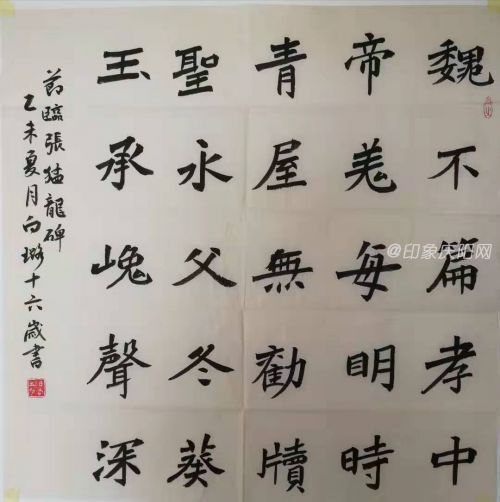 魏不篇孝中
帝羌每明時
青屋無勸牘
聖永父冬葵
玉承嵬聲深
節臨張猛龍碑
乙未夏月白璐十六歲書
@印象庆阳网